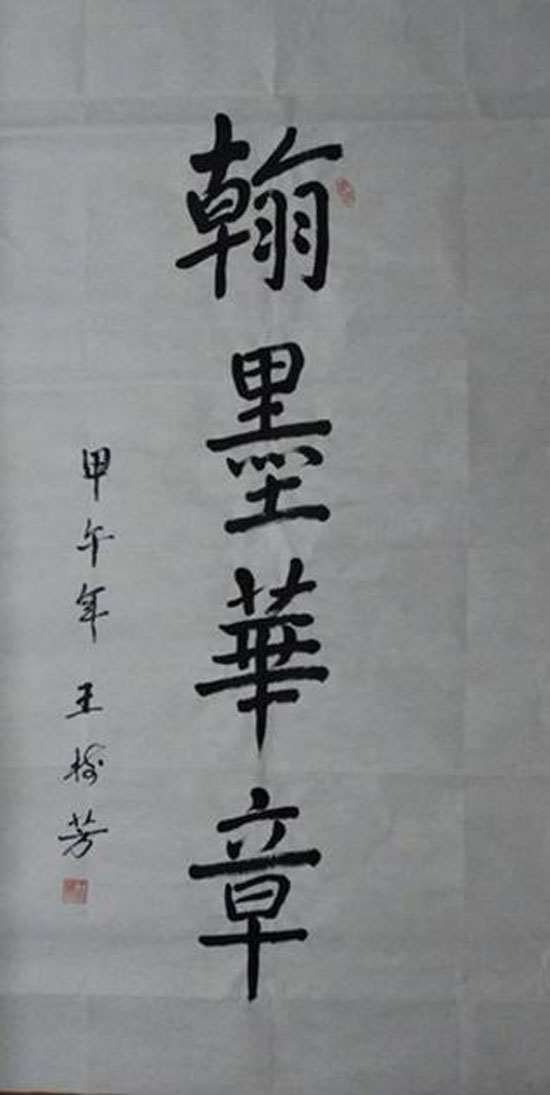 翰墨華章
甲午年 王梅芳